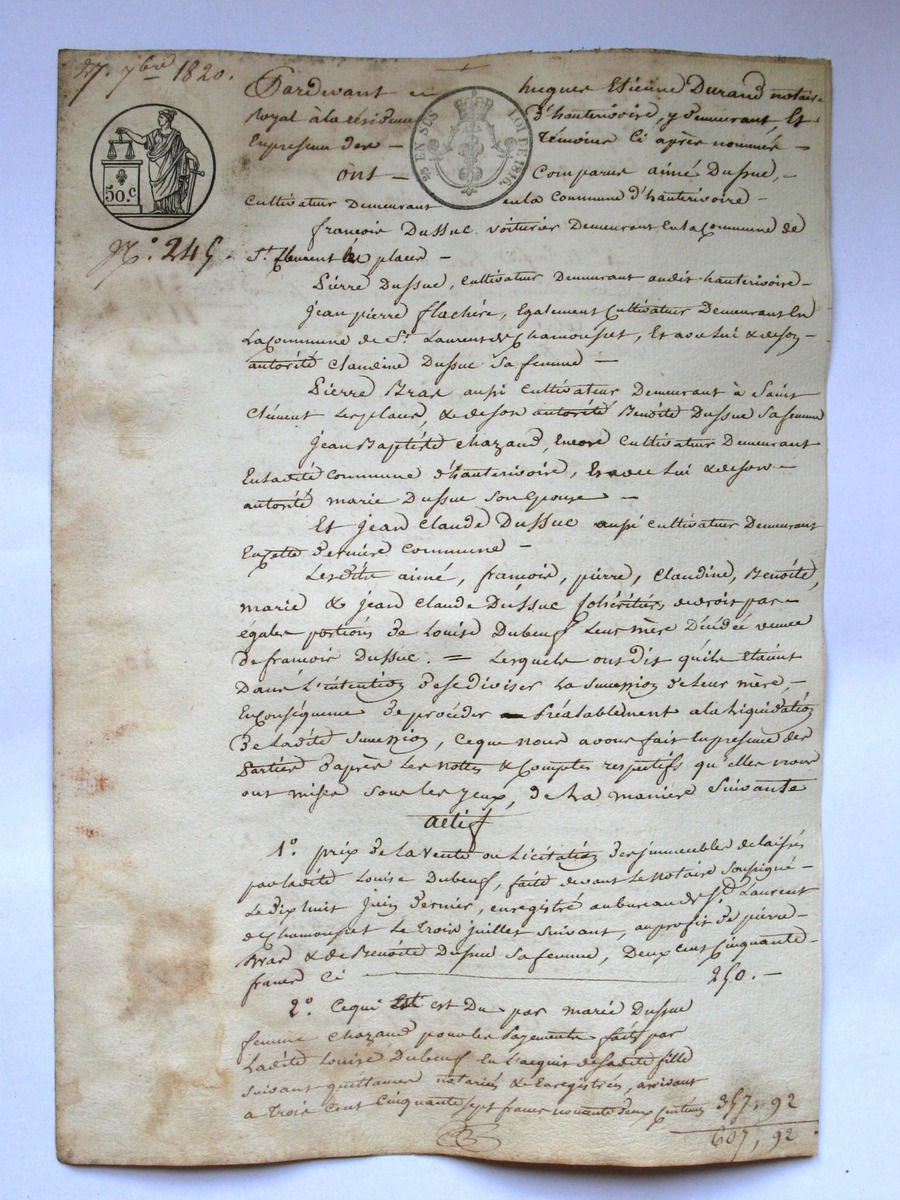 27 7bre 1820.
Pardevant hugues Etienne Durand notaire
royal à la résidence d'hauterivoire, y demeurant Et
En presence des Témoins Ci après nommés
25 EN SUS LOI DE 1816.
50.c
ont Comparus aimé Dussuc,
Cultivateur Demeurant en la Commune d'hauterivoire
N.o 245.
françois Dussuc voiturier Demeurant En la Commune de
St. Clement les places
Pierre Dussuc, Cultivateur Demeurant audit hauterivoire
Jean pierre flachère, Egalement Cultivateur Demeurant En
La Commune de St Laurent de Chamousset, Et avec lui & de son
autorité Claudine Dussuc sa femme
Pierre Bras aussi Cultivateur Demeurant à Saint
Clément Les places, & de son autorité Benoite Dussuc sa femme
Jean Baptiste Chazaud, Encore Cultivateur Demeurant
En ladite Commune d'hauterivoire, Et avec lui & de son
autorité marie Dussuc son Epouse
Et Jean Claude Dussuc aussi Cultivateur Demeurant
En Cette derniere Commune
Lesdits aimé, françois, pierre, Claudine, Benoite,
marie & Jean Claude Dussuc Cohéritiers de droit par
égales portions de Louise Dubeuf Leur mère Décédée veuve
de francois Dussuc. = Lesquels ont dit qu'ils Etaient
Dans L'intention de se diviser La Succession de Leur mère,
En Conséquence de procéder Préalablement a la Liquidation
de Ladite Succession, Ce que nous avons fait En presence des
Parties d'après Les nottes & Comptes respectifs qu'elles nous
ont mises sous les yeux, de La maniere Suivante
actif
1o. prix de La vente ou Licitation des immeubles delaissés
par ladite Louise Dubeuf, faite devant Le notaire Soussigné
Le dix huit Juin dernier, enregistré au bureau de St Laurent
de Chamousset Le Trois juillet Suivant, au profit de pierre
Bras & de Benoite Dussuc sa femme, Deux Cent Cinquante
francs Ci 250.-
2o. Ce qui est Du par marie Dussuc
femme Chazaud pour les Payements faits par
Ladite Louise Dubeuf En L'acquis de sadite fille
suivant quittances notariées & Enregistrées, arrivant
a Trois Cent Cinquante sept francs nonante deux Centimes 357, 92
607, 92